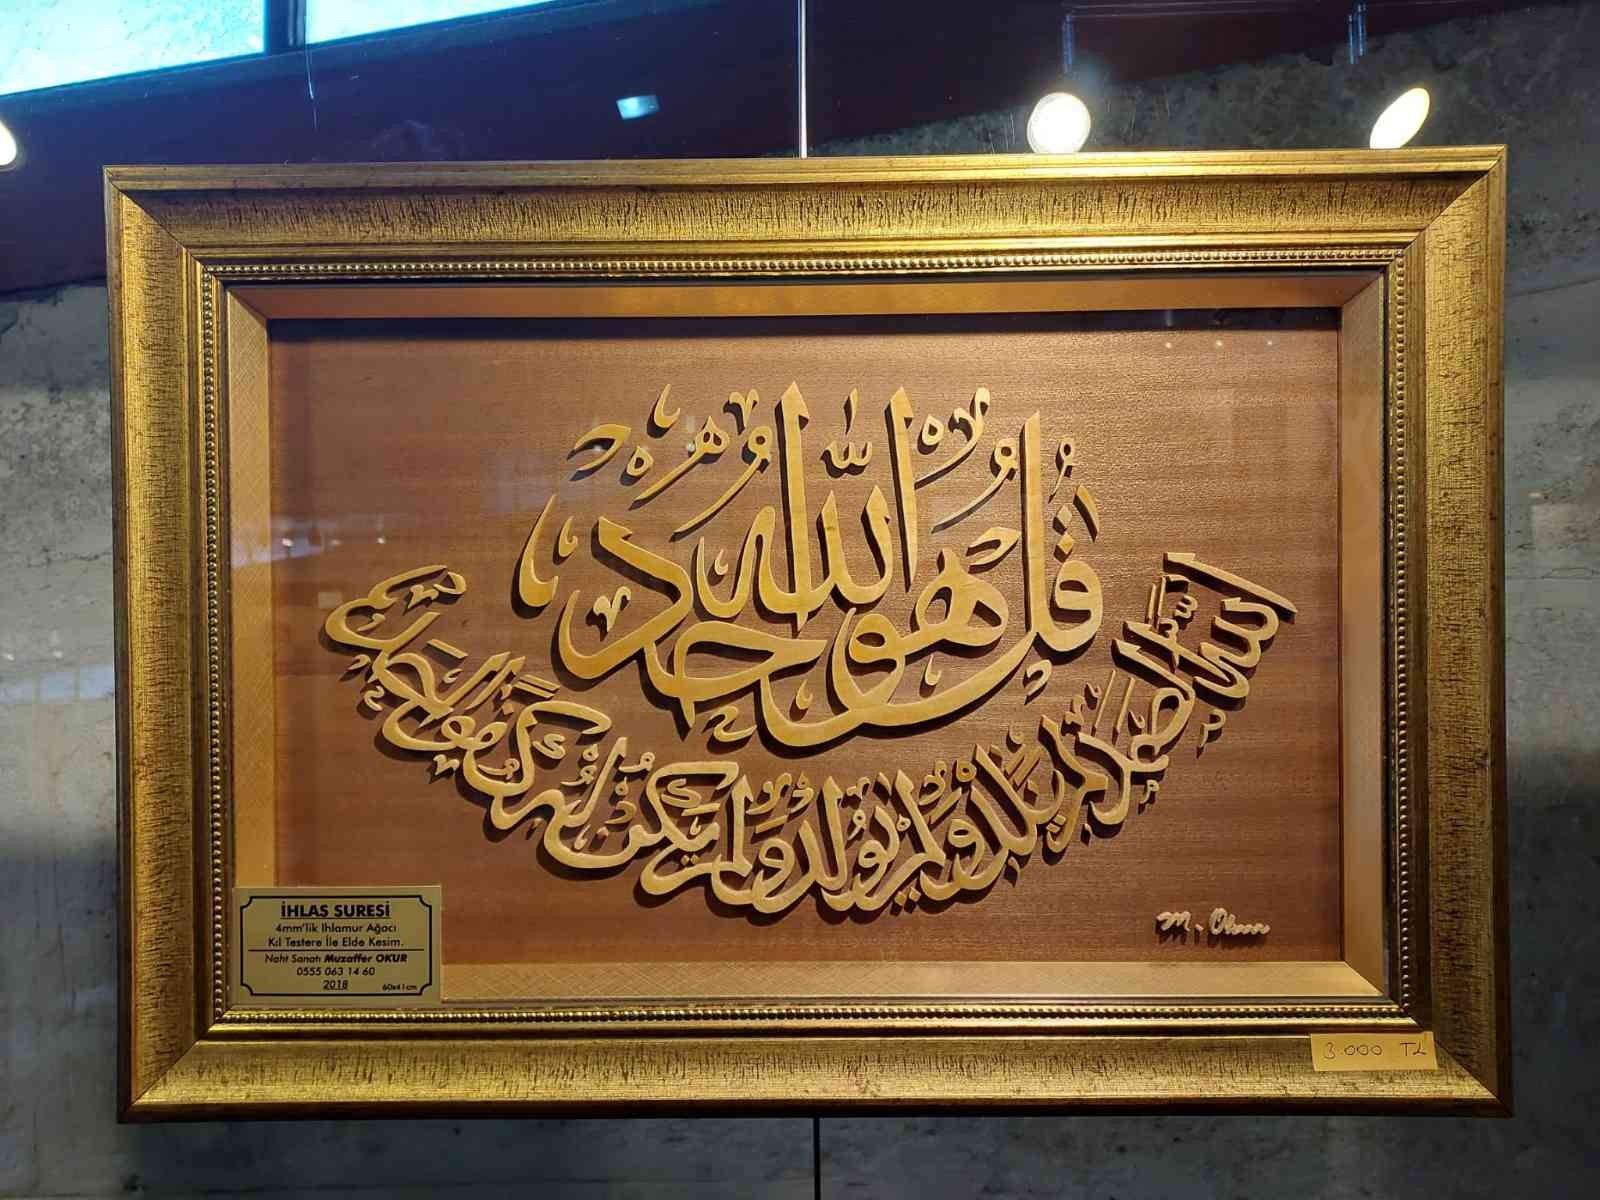 قُلْ هُوَ اللّٰهُ أَحَدٌ
اللّٰهُ الصَّمَدُ لَمْ يَلِدْ وَلَمْ يُولَدْ وَلَمْ يَكُنْ لَهُ كُفُوًا أَحَدٌ
M. Okur
İHLAS SURESİ
4mm'lik Ihlamur Ağacı
Kıl Testere İle Elde Kesim.
Naht Sanatı Muzaffer OKUR
0555 063 14 60
2018 60x41cm
3.000 TL